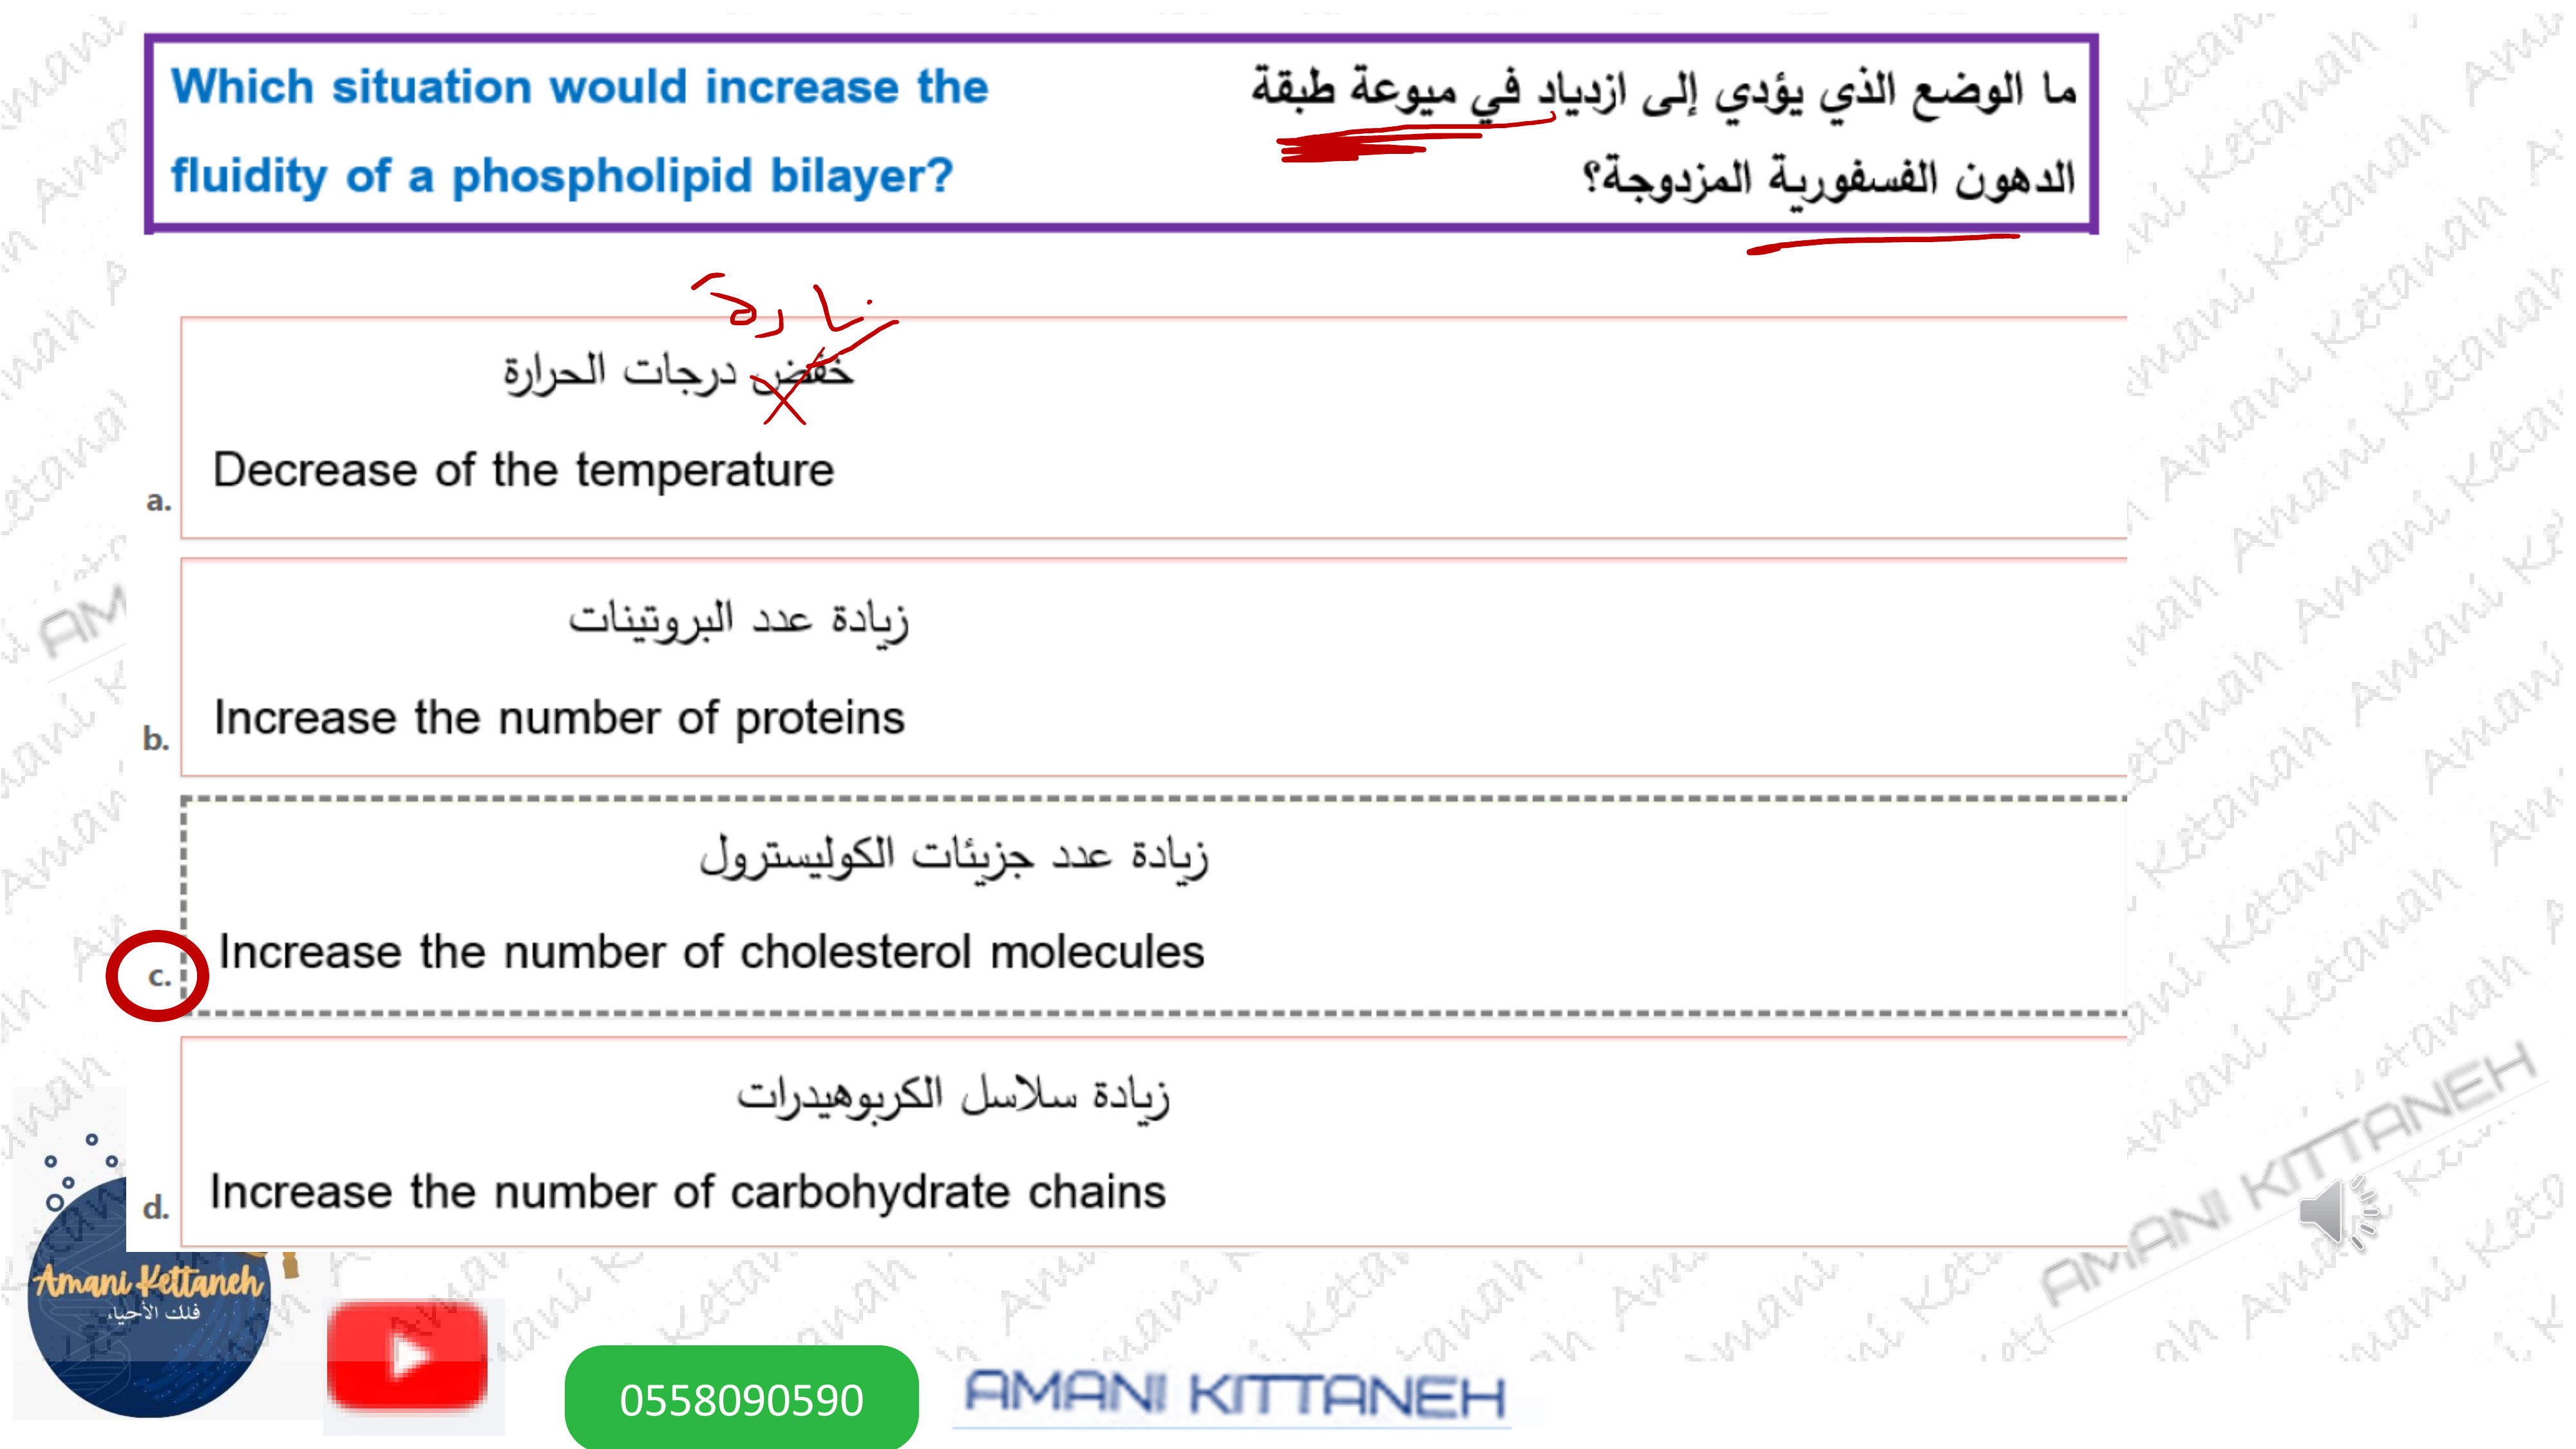 Which situation would increase the
fluidity of a phospholipid bilayer?
ما الوضع الذي يؤدي إلى ازدياد في ميوعة طبقة
الدهون الفسفورية المزدوجة؟
خفض درجات الحرارة
a. Decrease of the temperature
زيادة عدد البروتينات
b. Increase the number of proteins
زيادة عدد جزيئات الكوليسترول
c. Increase the number of cholesterol molecules
زيادة سلاسل الكربوهيدرات
d. Increase the number of carbohydrate chains
Amani Kettaneh
فلك الأحياء
0558090590
AMANI KITTANEH
AMANI KITTANEH